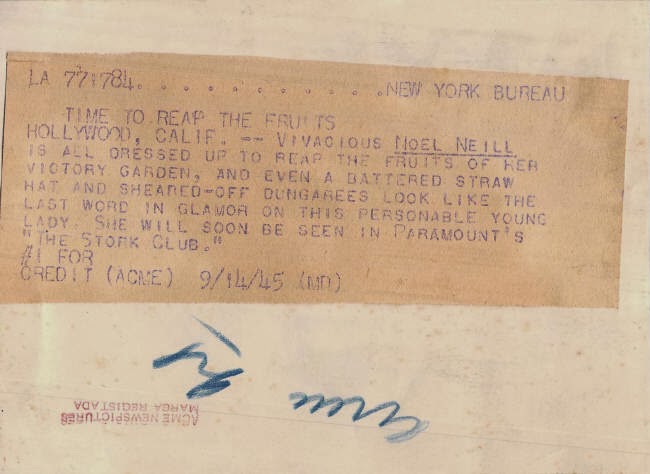 LA 771784. . . . . . . . . . . .NEW YORK BUREAU
TIME TO REAP THE FRUITS
HOLLYWOOD, CALIF. -- VIVACIOUS NOEL NEILL
IS ALL DRESSED UP TO REAP THE FRUITS OF HER
VICTORY GARDEN, AND EVEN A BATTERED STRAW
HAT AND SHEARED-OFF DUNGAREES LOOK LIKE THE
LAST WORD IN GLAMOR ON THIS PERSONABLE YOUNG
LADY. SHE WILL SOON BE SEEN IN PARAMOUNT'S
"THE STORK CLUB."
#1 FOR
CREDIT (ACME) 9/14/45 (MD)
ACME NEWSPICTURES
MARCA REGISTADA